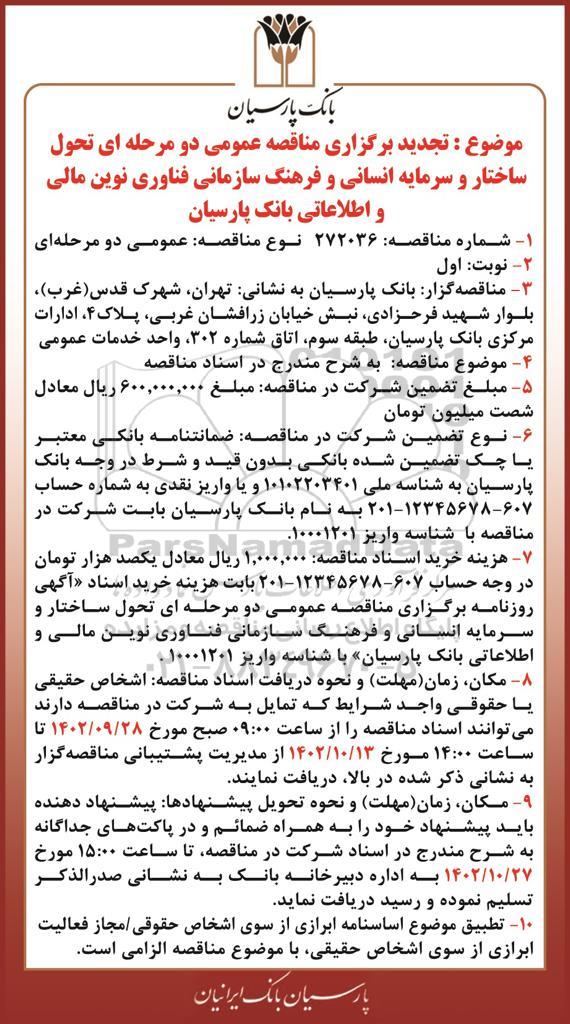 بانک پارسیان
موضوع : تجدید برگزاری مناقصه عمومی دو مرحله ای تحول
ساختار و سرمایه انسانی و فرهنگ سازمانی فناوری نوین مالی
و اطلاعاتی بانک پارسیان
۱- شماره مناقصه: ۲۷۲۰۳۶ نوع مناقصه: عمومی دو مرحله‌ای
۲- نوبت: اول
۳- مناقصه‌گزار: بانک پارسیان به نشانی: تهران، شهرک قدس(غرب)،
بلوار شهید فرحزادی، نبش خیابان زرافشان غربی، پلاک۴، ادارات
مرکزی بانک پارسیان، طبقه سوم، اتاق شماره ۳۰۲، واحد خدمات عمومی
۴- موضوع مناقصه: به شرح مندرج در اسناد مناقصه
۵- مبلغ تضمین شرکت در مناقصه: مبلغ ۶۰۰,۰۰۰,۰۰۰ ریال معادل
شصت میلیون تومان
۶- نوع تضمین شرکت در مناقصه: ضمانتنامه بانکی معتبر
یا چک تضمین شده بانکی بدون قید و شرط در وجه بانک
پارسیان به شناسه ملی ۱۰۱۰۲۲۰۳۴۰۱ و یا واریز نقدی به شماره حساب
۲۰۱-۱۲۳۴۵۶۷۸-۶۰۷ به نام بانک پارسیان بابت شرکت در
مناقصه با شناسه واریز ۱۰۰۰۱۲۰۱.
۷- هزینه خرید اسناد مناقصه: ۱,۰۰۰,۰۰۰ ریال معادل یکصد هزار تومان
در وجه حساب ۶۰۷-۱۲۳۴۵۶۷۸-۲۰۱ بابت هزینه خرید اسناد «آگهی
روزنامه برگزاری مناقصه عمومی دو مرحله ای تحول ساختار و
سرمایه انسانی و فرهنگ سازمانی فناوری نوین مالی و
اطلاعاتی بانک پارسیان» با شناسه واریز ۱۰۰۰۱۲۰۱.
۸- مکان، زمان(مهلت) و نحوه دریافت اسناد مناقصه: اشخاص حقیقی
یا حقوقی واجد شرایط که تمایل به شرکت در مناقصه دارند
می‌توانند اسناد مناقصه را از ساعت ۰۹:۰۰ صبح مورخ ۱۴۰۲/۰۹/۲۸ تا
ساعت ۱۴:۰۰ مورخ ۱۴۰۲/۱۰/۱۳ از مدیریت پشتیبانی مناقصه‌گزار
به نشانی ذکر شده در بالا، دریافت نمایند.
۹- مکان، زمان(مهلت) و نحوه تحویل پیشنهادها: پیشنهاد دهنده
باید پیشنهاد خود را به همراه ضمائم و در پاکت‌های جداگانه
به شرح مندرج در اسناد شرکت در مناقصه، تا ساعت ۱۵:۰۰ مورخ
۱۴۰۲/۱۰/۲۷ به اداره دبیرخانه بانک به نشانی صدرالذکر
تسلیم نموده و رسید دریافت نماید.
۱۰- تطبیق موضوع اساسنامه ابرازی از سوی اشخاص حقوقی/مجاز فعالیت
ابرازی از سوی اشخاص حقیقی، با موضوع مناقصه الزامی است.
پارسیان بانک ایرانیان
ParsNamadData